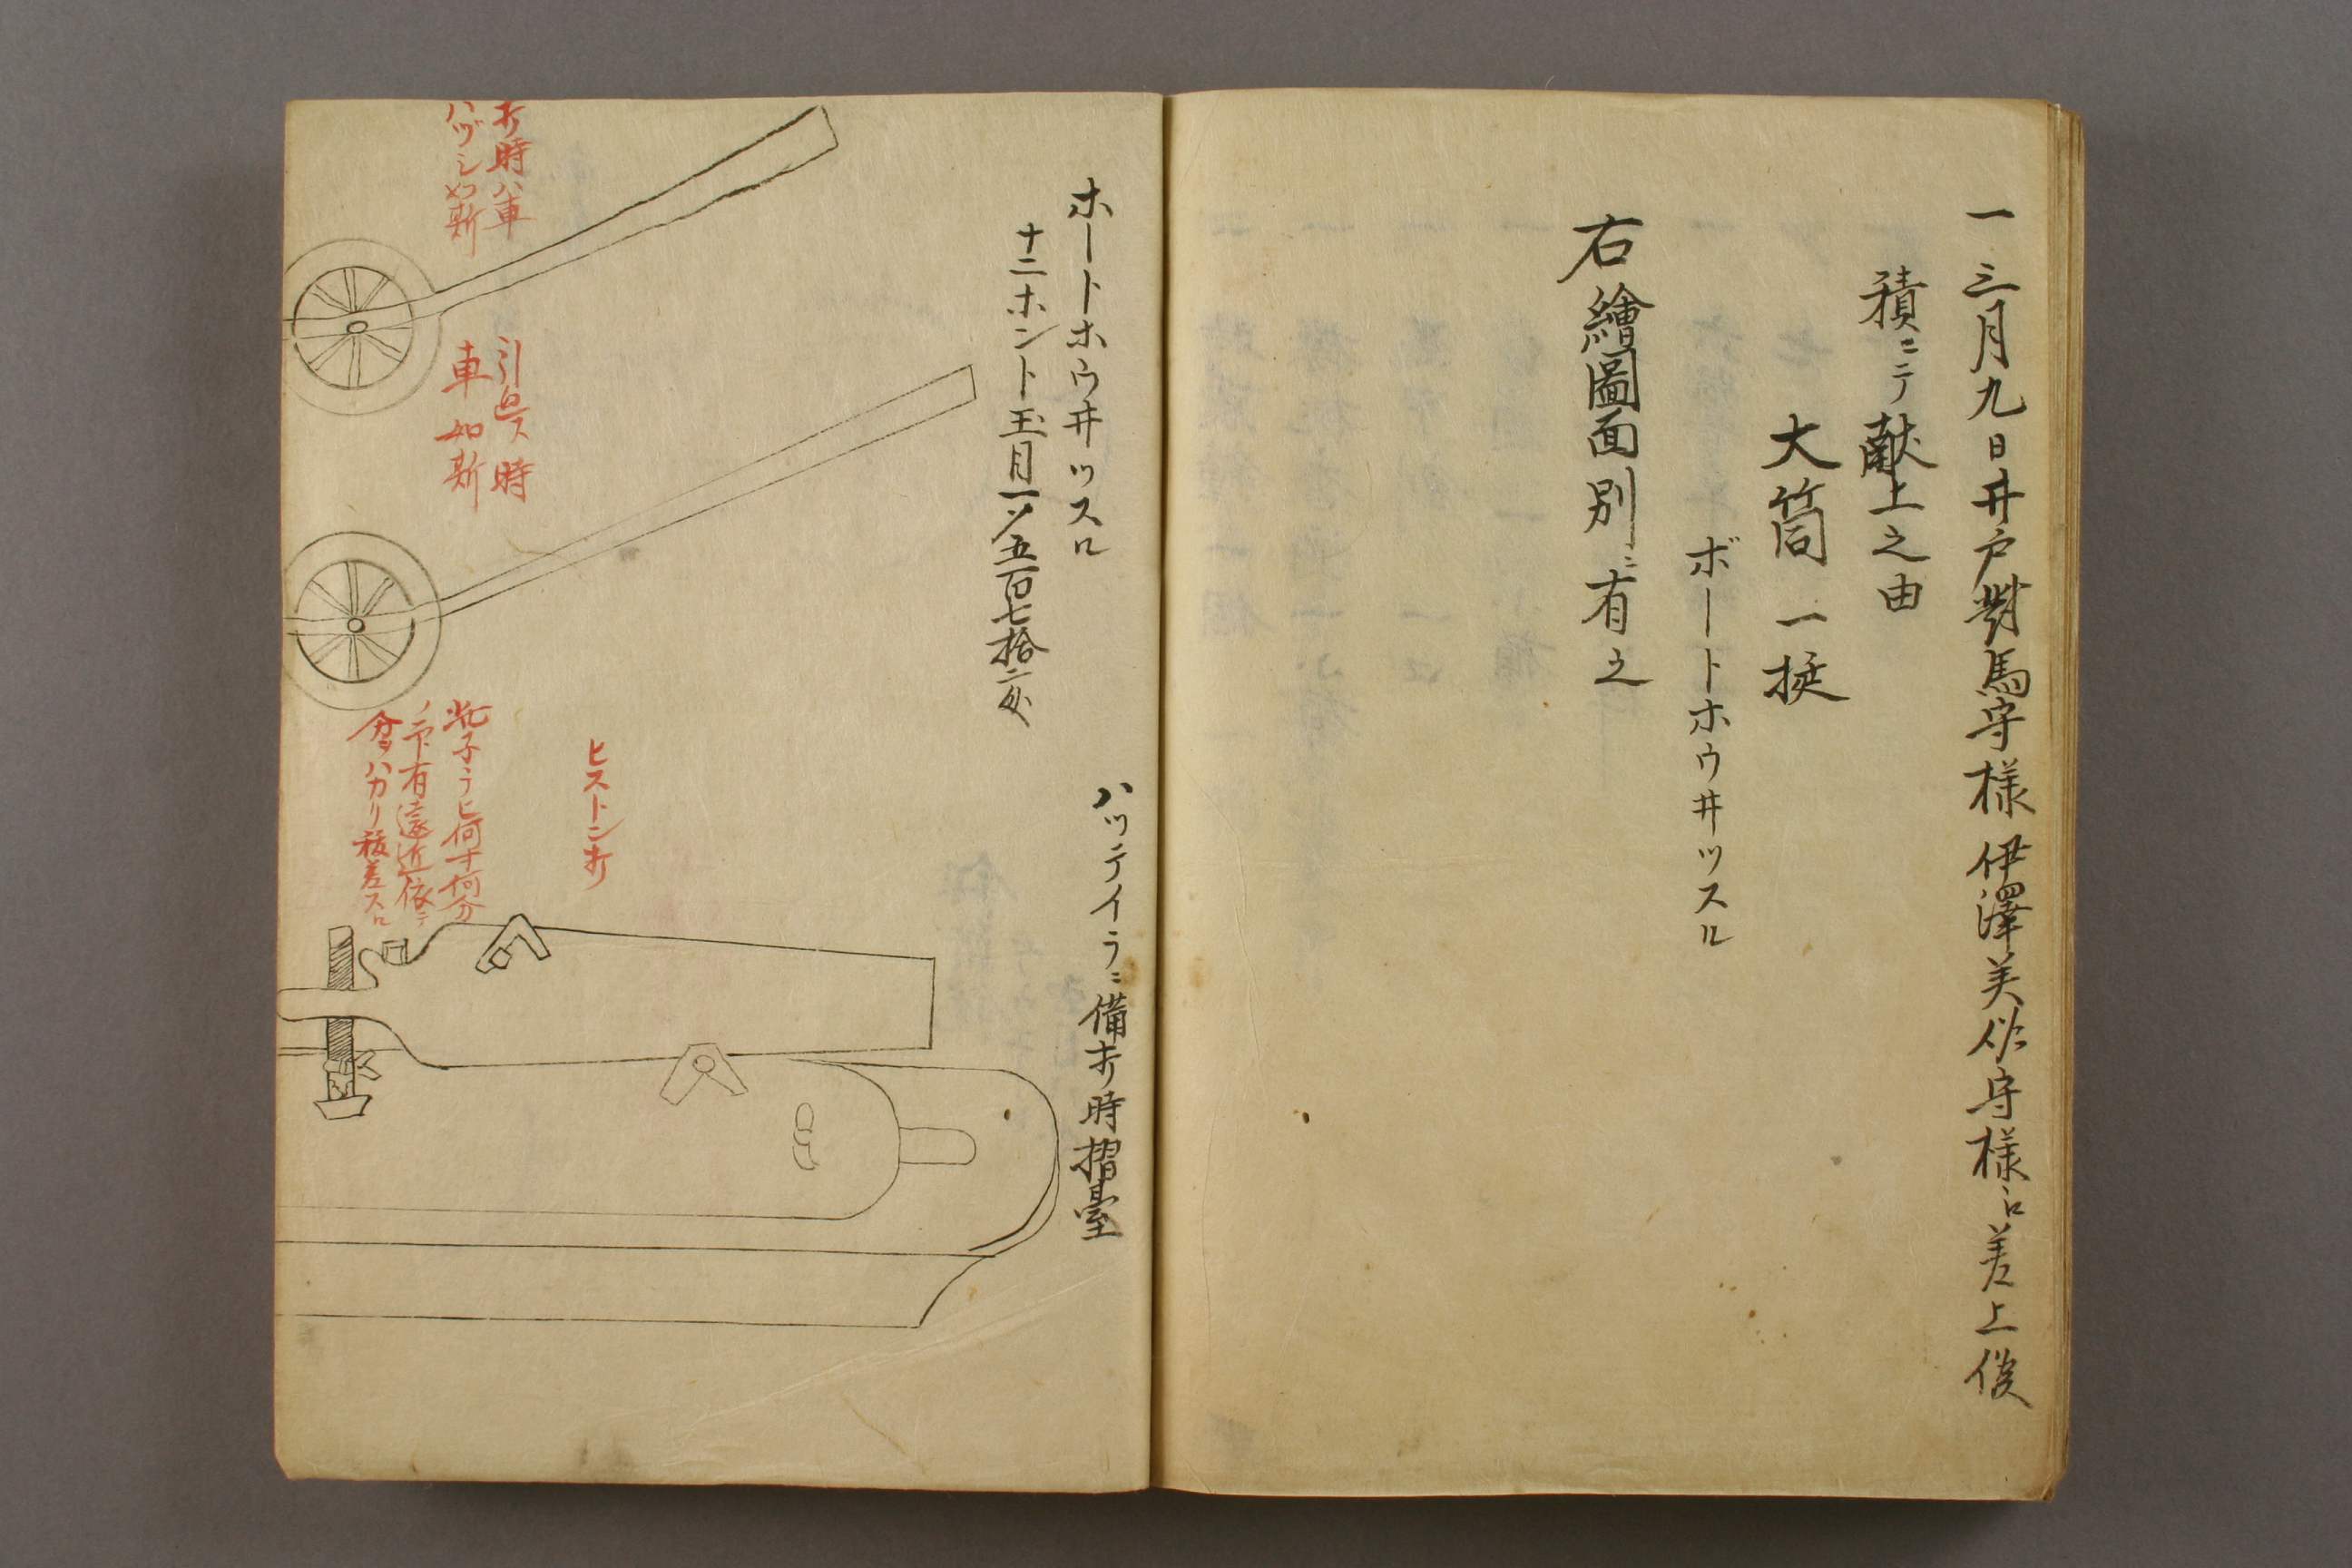 一三月九日井戸對馬守様伊澤美作守様ニ而差上候
積ニテ献上之由
大筒一挺
ボートホウ井ツスル
右繪圖面別ニ有之
ホートホウ井ツスル
十二ホント玉目一〆五百七拾二匁
ハツテイラニ備打時摺臺
打時ハ車
ハヅシ如斯
引出ス時
車如斯
ヒストン打
此子ラヒ何寸何分
ノ印有遠近依テ
分ヲハカリ 差スル